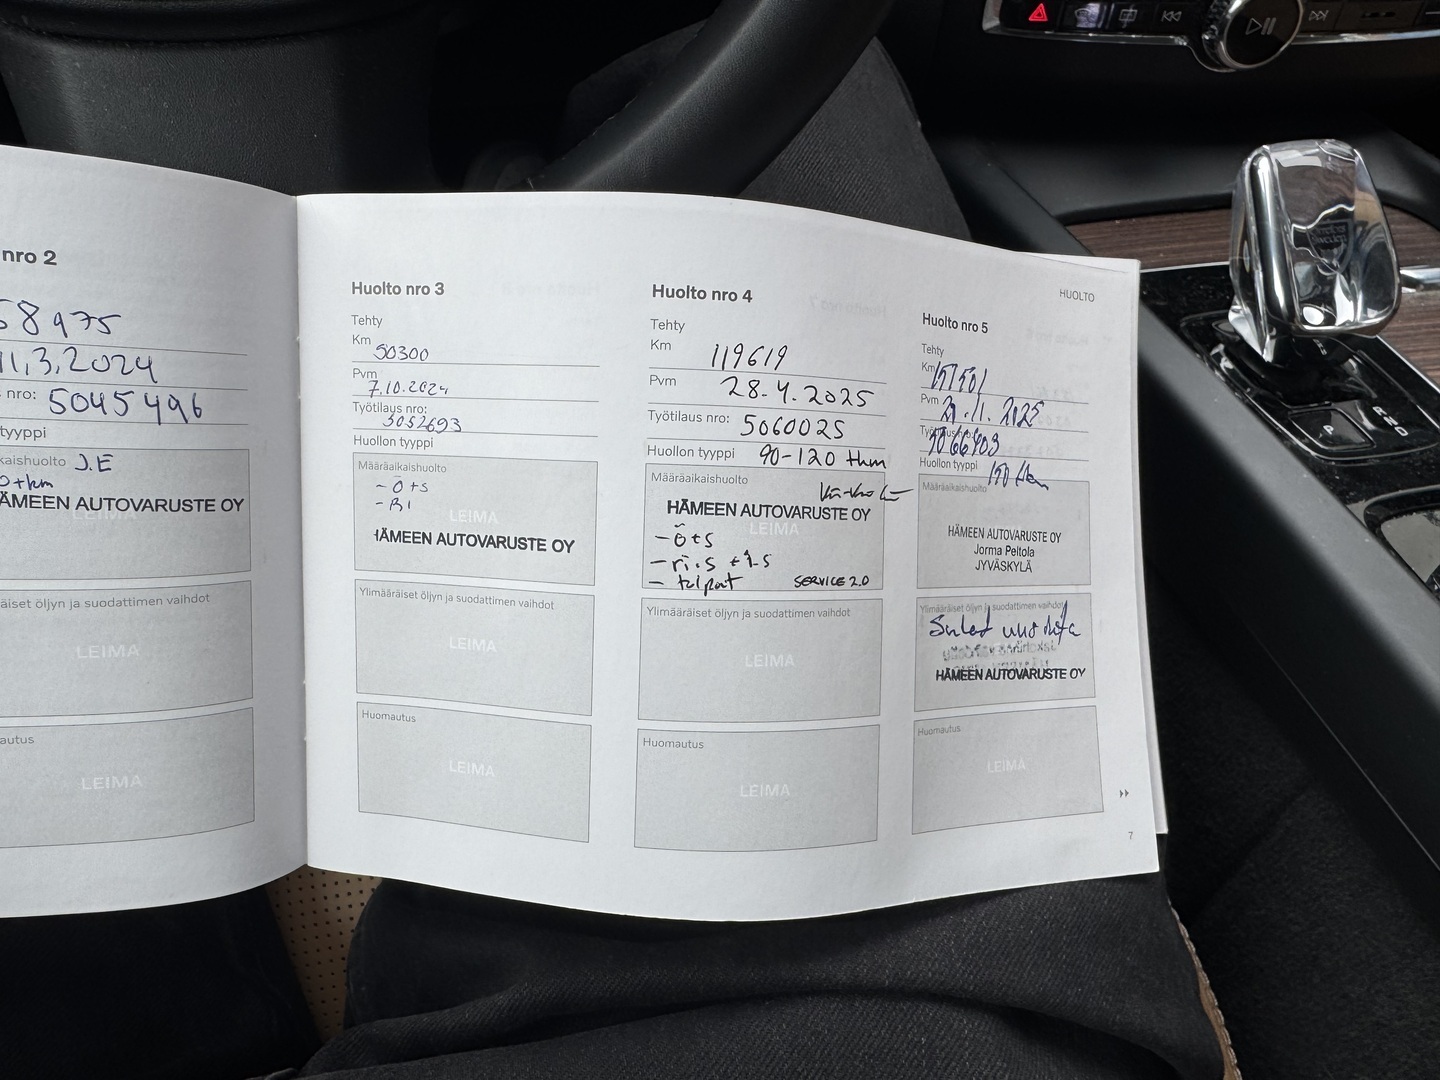 nro 2
58975
11.3.2024
nro: 5045496
tyyppi
kaishuolto J.E
ÄMEEN AUTOVARUSTE OY
LEIMA
äiset öljyn ja suodattimen vaihdot
LEIMA
autus
LEIMA
Huolto nro 3
Tehty
Km 90300
Pvm 7.10.2024
Työtilaus nro: 5052693
Huollon tyyppi
Määräaikaishuolto
- Ö+S
LEIMA
HÄMEEN AUTOVARUSTE OY
Ylimääräiset öljyn ja suodattimen vaihdot
LEIMA
Huomautus
LEIMA
Huolto nro 4
Tehty
Km 119619
Pvm 28.4.2025
Työtilaus nro: 5060025
Huollon tyyppi 90-120 tkm
Määräaikaishuolto
HÄMEEN AUTOVARUSTE OY
LEIMA
- ö+s
- tulpat SERVICE 2.0
Ylimääräiset öljyn ja suodattimen vaihdot
LEIMA
Huomautus
LEIMA
HUOLTO
Huolto nro 5
Tehty
Km 151501
Pvm 21.11.2025
Työtilaus nro:
Huollon tyyppi 150 tkm
Määräaikaishuolto
HÄMEEN AUTOVARUSTE OY
Jorma Peltola
JYVÄSKYLÄ
Ylimääräiset öljyn ja suodattimen vaihdot
HÄMEEN AUTOVARUSTE OY
Huomautus
LEIMA
7
P
R
N
D